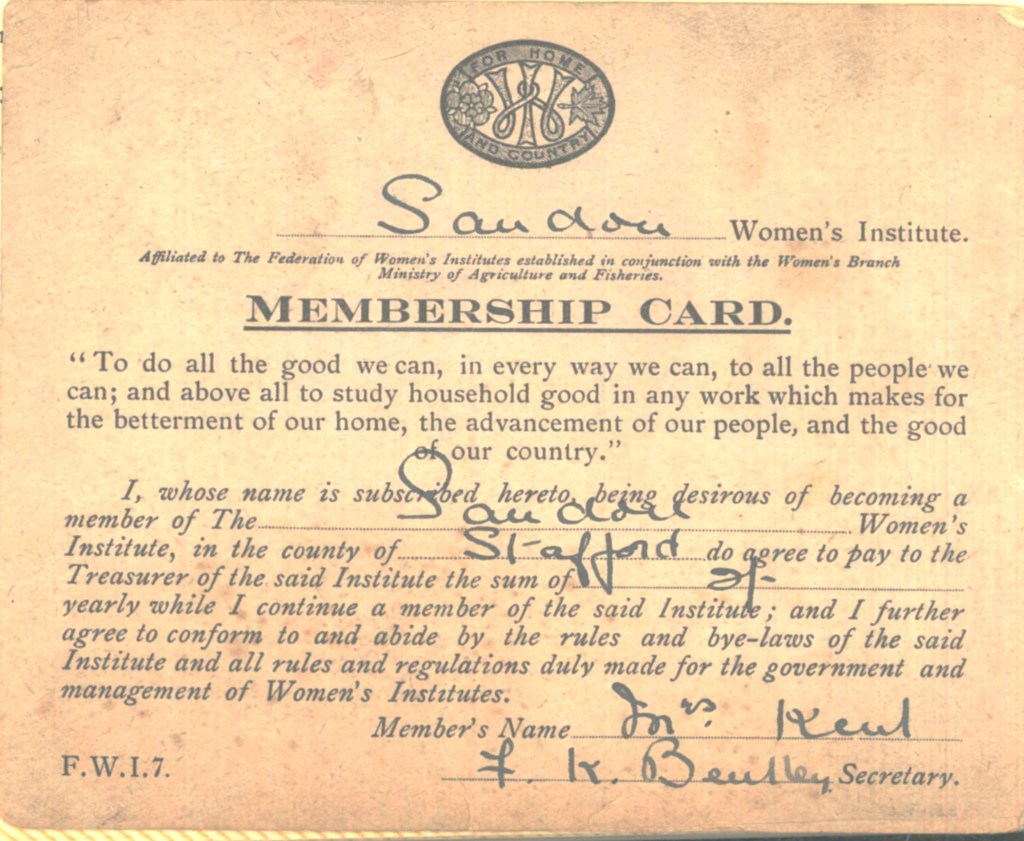 FOR HOME
WI
AND COUNTRY
Sandon Women's Institute.
Affiliated to The Federation of Women's Institutes established in conjunction with the Women's Branch
Ministry of Agriculture and Fisheries.
MEMBERSHIP CARD.
"To do all the good we can, in every way we can, to all the people we
can; and above all to study household good in any work which makes for
the betterment of our home, the advancement of our people, and the good
of our country."
I, whose name is subscribed hereto, being desirous of becoming a
member of The Sandon Women's
Institute, in the county of Stafford do agree to pay to the
Treasurer of the said Institute the sum of 2/-
yearly while I continue a member of the said Institute; and I further
agree to conform to and abide by the rules and bye-laws of the said
Institute and all rules and regulations duly made for the government and
management of Women's Institutes.
Member's Name Mrs. Kent
F.W.I.7. F. K. Bentley Secretary.